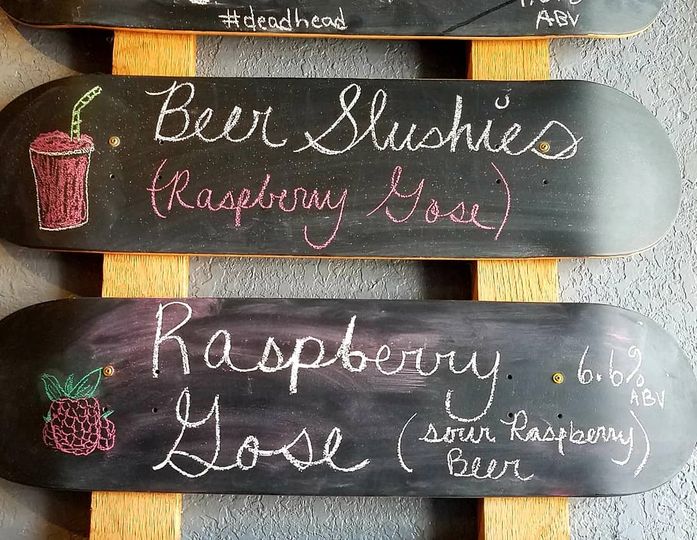 #deadhead
ABV
Beer Slushies
(Raspberry Gose)
Raspberry
6.6%
ABV
Gose (sour Raspberry)
Beer